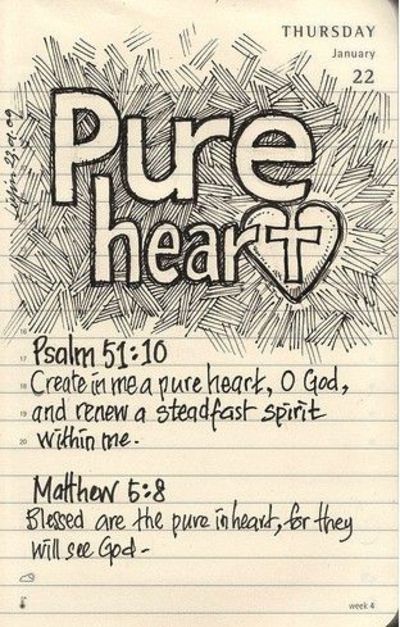 THURSDAY
January
22
Pure
heart
16
17
Psalm 51:10
18
Create in me a pure heart, O God,
19
and renew a steadfast spirit
20
within me.
Matthew 5:8
Blessed are the pure in heart, for they
will see God-
week 4